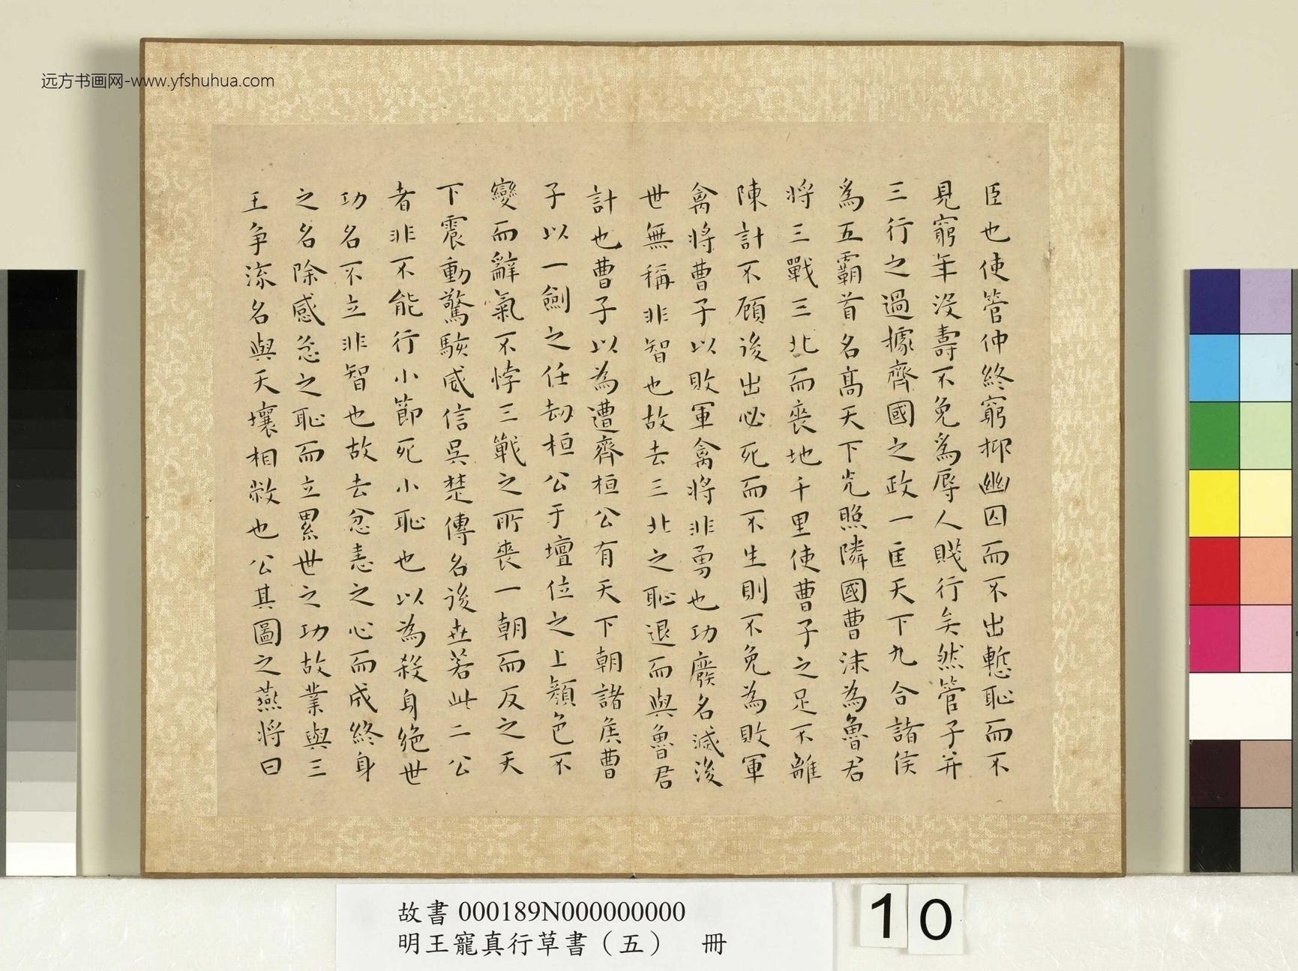 远方书画网-www.yfshuhua.com
臣也使管仲終窮抑幽囚而不出慙恥而不
見窮年沒壽不免為辱人賤行矣然管子并
三行之過據齊國之政一匡天下九合諸侯
為五霸首名高天下光照隣國曹沫為魯君
將三戰三北而喪地千里使曹子之足不離
陳計不顧後出必死而不生則不免為敗軍
禽將曹子以敗軍禽將非勇也功廢名滅後
世無稱非智也故去三北之恥退而與魯君
計也曹子以為遭齊桓公有天下朝諸侯曹
子以一劍之任劫桓公于壇位之上顏色不
變而辭氣不悖三戰之所喪一朝而反之天
下震動驚駭威信吳楚傳名後世若此二公
者非不能行小節死小恥也以為殺身絕世
功名不立非智也故去忿恚之心而成終身
之名除感忿之恥而立累世之功故業與三
王爭流名與天壤相敝也公其圖之燕將曰
故書 000189N000000000
明王寵真行草書（五） 冊
10